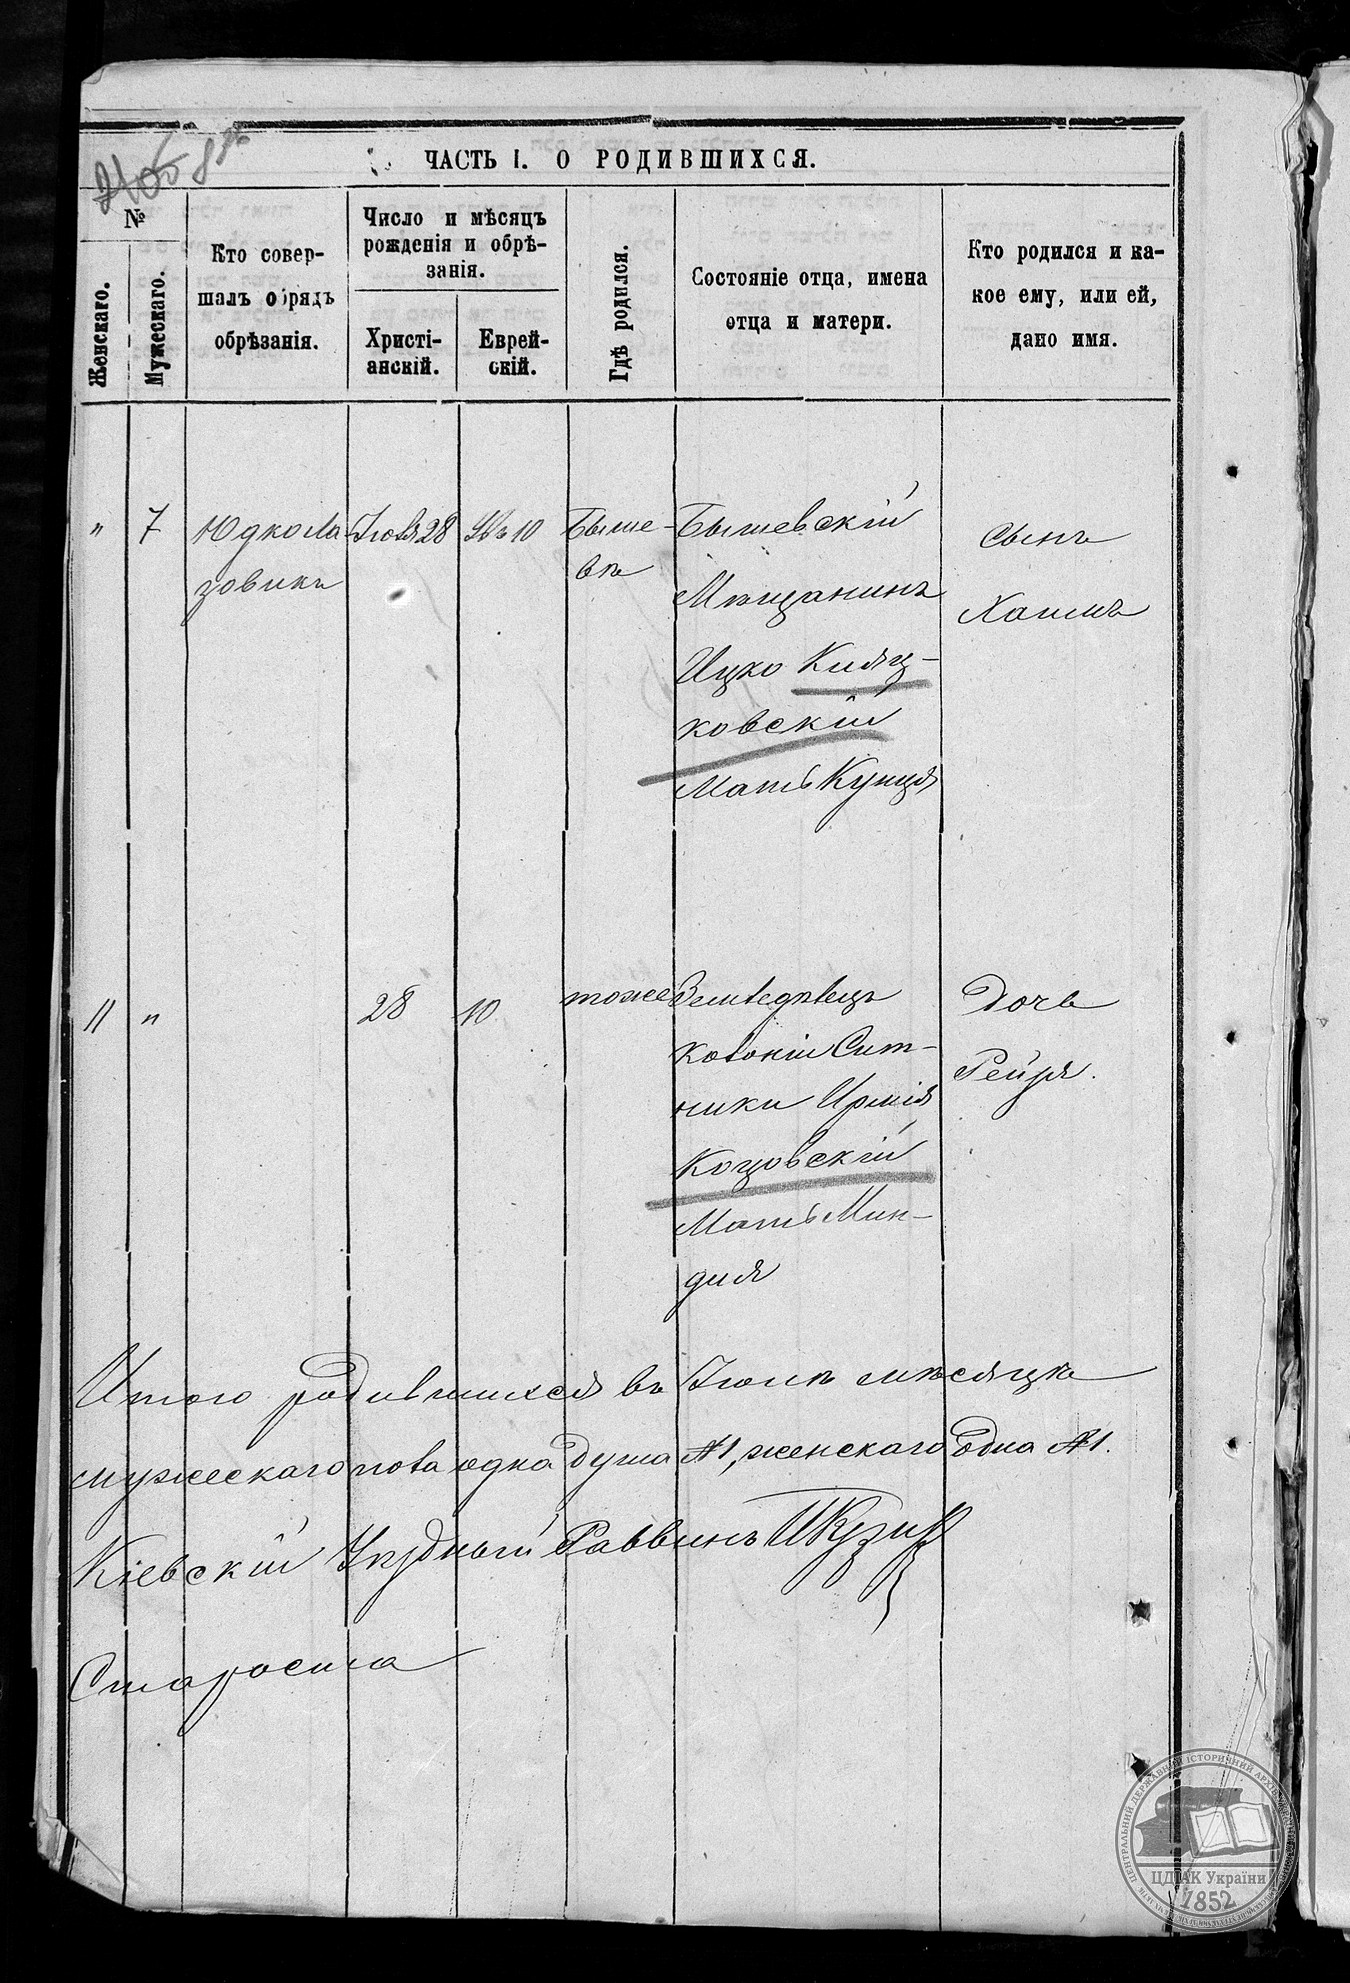 ЧАСТЬ I. О РОДИВШИХСЯ.
№
Женскаго.
Мужескаго.
Кто совер-
шалъ обрядъ
обрѣзанія.
Число и мѣсяцъ
рожденія и обрѣ-
занія.
Христі-
анскій.
Еврей-
скій.
Гдѣ родился.
Состояніе отца, имена
отца и матери.
Кто родился и ка-
кое ему, или ей,
дано имя.
" 7
Юдко Ла
зовикъ
Іюля 28
10
Быше-
вѣ
Бышевскій
Мѣщанинъ
Ицко Кияц-
ковскій
Мать Кунця
Сынъ
Хаимъ
11 "
28
10
тоже
Земледѣлецъ
Колоніи Сит-
ники Ирмія
Коцовскій
Мать Мин-
для
Дочь
Рейзя.
Итого родившихся въ Іюлѣ мѣсяцѣ
мужескаго пола одна душа №1, женскаго одна №1.
Кіевскій Уѣздный Раввинъ
Староста
ЦДІАК України
1852